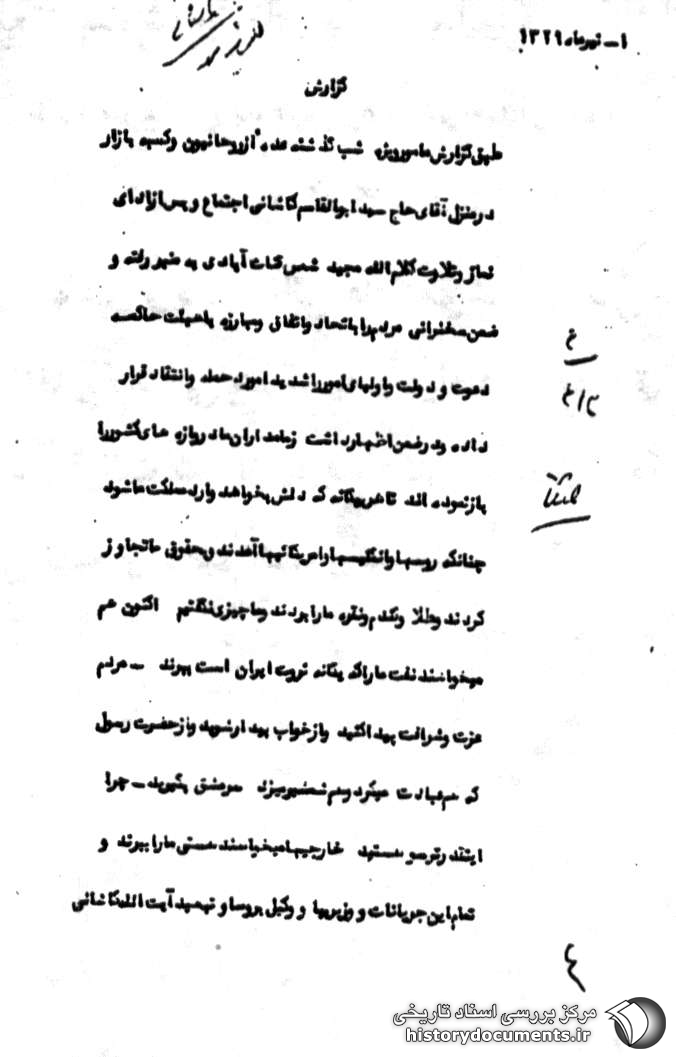 ۱ــ تیرماه ۱۳۲۹
گزارش
طبق گزارش مامورویژه شب گذشته عده ای از روحانیون وکسبه بازار
درمنزل آقای حاج سید ابوالقاسم کاشانی اجتماع و پس ازادای
نماز وتلاوت کلام الله مجید شمس قنات آبادی به منبر رفته و
ضمن سخنرانی مردم را باتحاد واتفاق ومبارزه باهیئت حاکمه
دعوت و دولت واولیای امور را شدیدا مورد حمله وانتقاد قرار
داده ودرضمن اظهارداشت زمامداران مادروازه های کشور را
باز نموده اند تاهربیگانه که دلش بخواهد وارد مملکت ماشود
چنانکه روسها وانگلیسها وامریکائیها آمدند وبحقوق ماتجاوز
کردند وطلا وگندم ونقره مارا بردند وماچیزی نگفتیم اکنون هم
میخواهند نفت ماراکه یگانه ثروت ایران است ببرند ــ مردم
عزت وشرافت پیداکنید وازخواب بیدارشوید وازحضرت رسول
که هم عبادت میکرد وهم شمشیرمیزد سرمشق بگیرید ــ چرا
اینقدرترسو هستید خارجیها میخواهند هستی مارا ببرند و
تمام این جریانات و وزیربیا و وکیل بروسا و تبعید آیت الله کاشانی
۴
مرکز بررسی اسناد تاریخی
historydocuments.ir